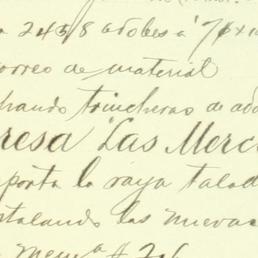 a 2458 adobes á 7º x 10
correo de material
chando trincheras de ado
resa "Las Merce
porta la raya talad
stalando las nuevas